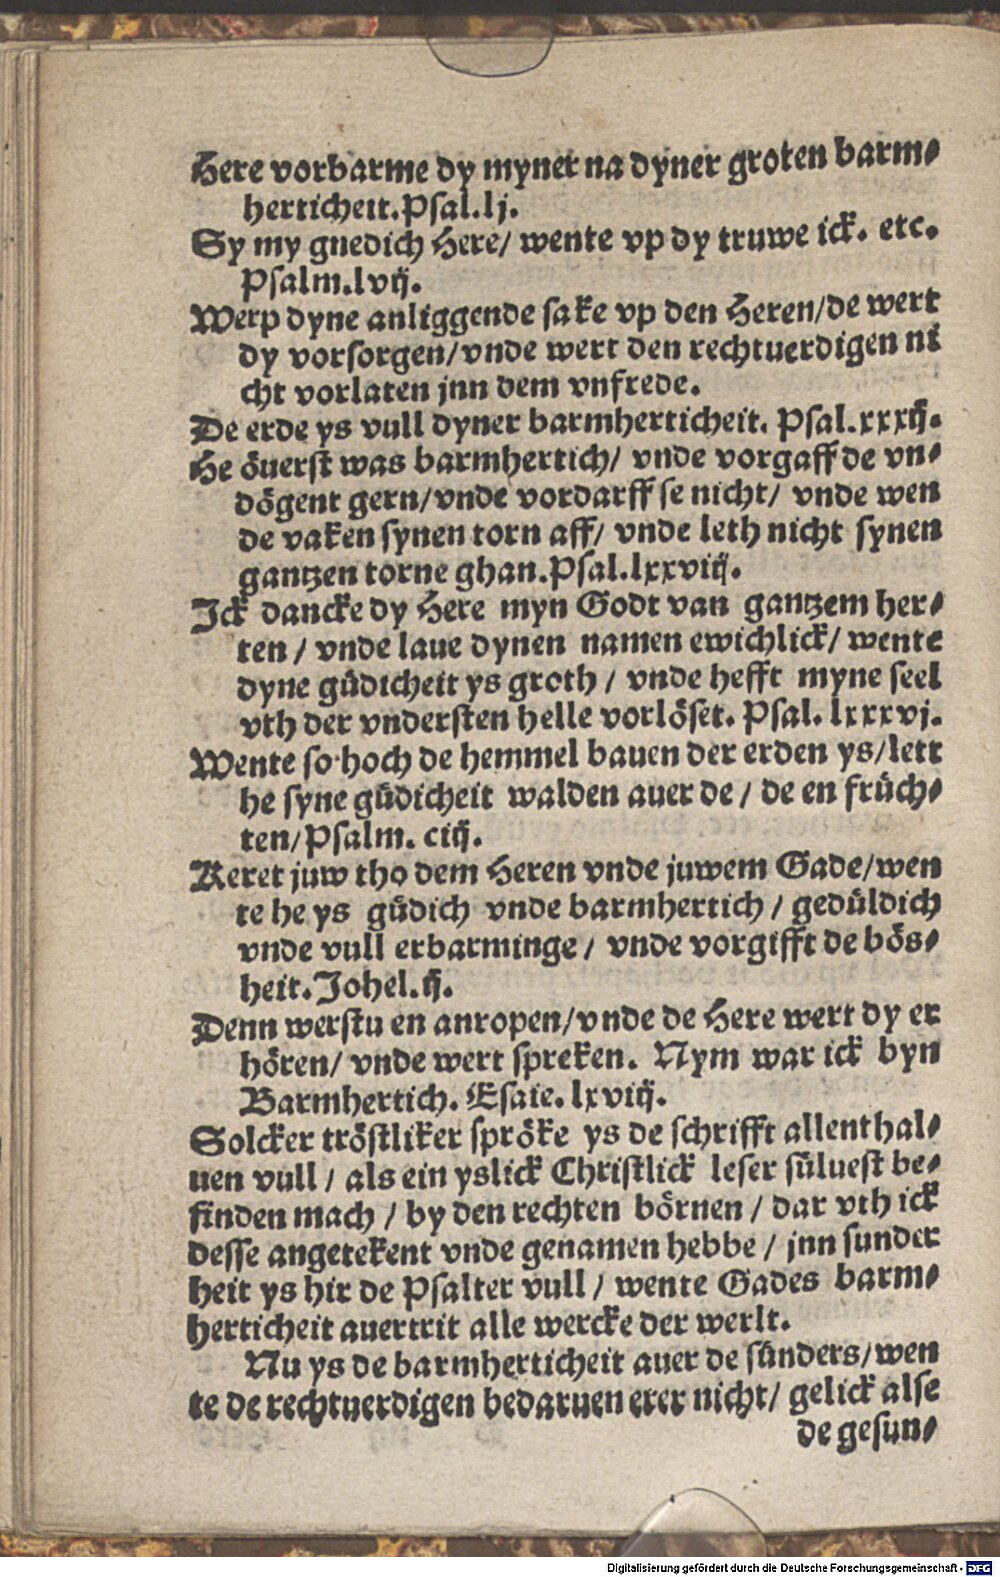 Here vorbarme dy myner na dyner groten barm⸗
herticheit. Psal. lj.
Sy my gnedich Here/ wente vp dy truwe ick. etc.
Psalm. lvij.
Werp dyne anliggende sake vp den Heren/de wert
dy vorsorgen/vnde wert den rechtuerdigen ni
cht vorlaten jnn dem vnfrede.
De erde ys vull dyner barmherticheit. Psal. xxxij.
He öuerst was barmhertich/ vnde vorgaff de vn⸗
dögent gern/vnde vordarff se nicht/ vnde wen
de vaken synen torn aff/ vnde leth nicht synen
gantzen torne ghan. Psal. lxxviij.
Ick dancke dy Here myn Godt van gantzem her⸗
ten / vnde laue dynen namen ewichlick/ wente
dyne güdicheit ys groth / vnde hefft myne seel
vth der vndersten helle vorlöset. Psal. lxxxvj.
Wente so hoch de hemmel bauen der erden ys/lett
he syne güdicheit walden auer de / de en früch⸗
ten/Psalm. ciij.
Keret juw tho dem Heren vnde juwem Gade/wen
te he ys güdich vnde barmhertich / gedüldich
vnde vull erbarminge / vnde vorgifft de bös⸗
heit. Johel. ij.
Denn werstu en anropen/vnde de Here wert dy er
hören/ vnde wert spreken. Nym war ick byn
Barmhertich. Esaie. lxviij.
Solcker tröstliker spröke ys de schrifft allenthal⸗
uen vull / als ein yslick Christlick leser süluest be⸗
finden mach / by den rechten börnen / dar vth ick
desse angetekent vnde genamen hebbe / jnn sunder
heit ys hir de Psalter vull / wente Gades barm⸗
herticheit auertrit alle wercke der werlt.
Nu ys de barmherticheit auer de sünders/wen
te de rechtuerdigen bedaruen erer nicht/ gelick alse
de gesun⸗
Digitalisierung gefördert durch die Deutsche Forschungsgemeinschaft - DFG